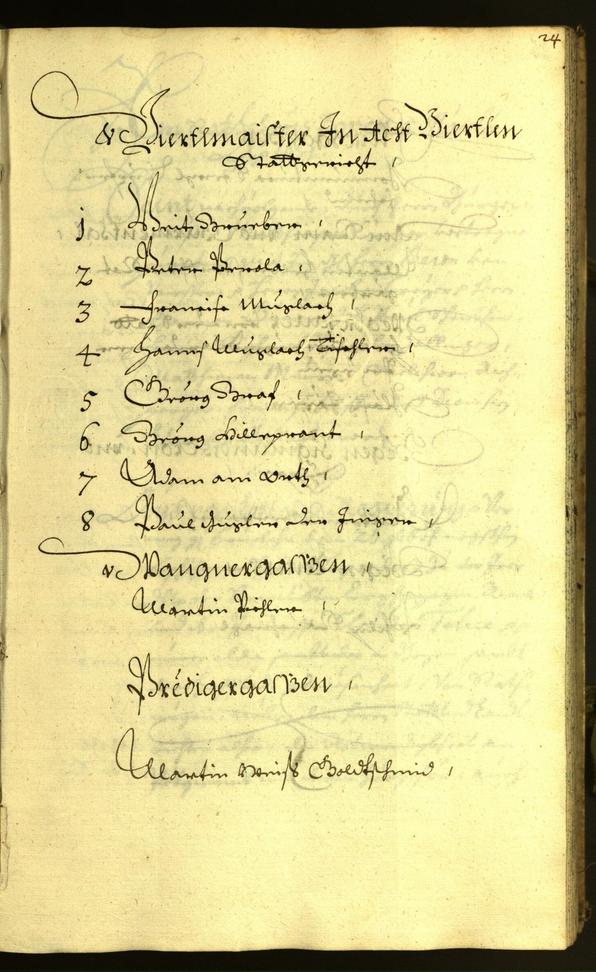 24
Viertlmaister In Acht Viertlen
Statgericht
1 Veit Grueber
2 Peter Perola
3 Francisc
4 Hanns Tischler
5 Geörg Graf
6 Geörg Hilleprant
7 Adam am Orth
8 Paul der Jünger
Wangnergassen
Martin Pichler
Predigergassen
Martin Weiß Goldtschmid